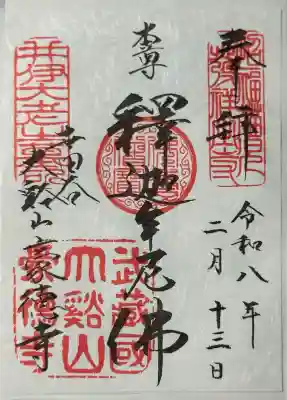 奉拝
令和八年
二月十三日
本尊
釋迦牟尼佛
世田谷
大谿山豪徳寺
武蔵國
大谿山
豪徳寺